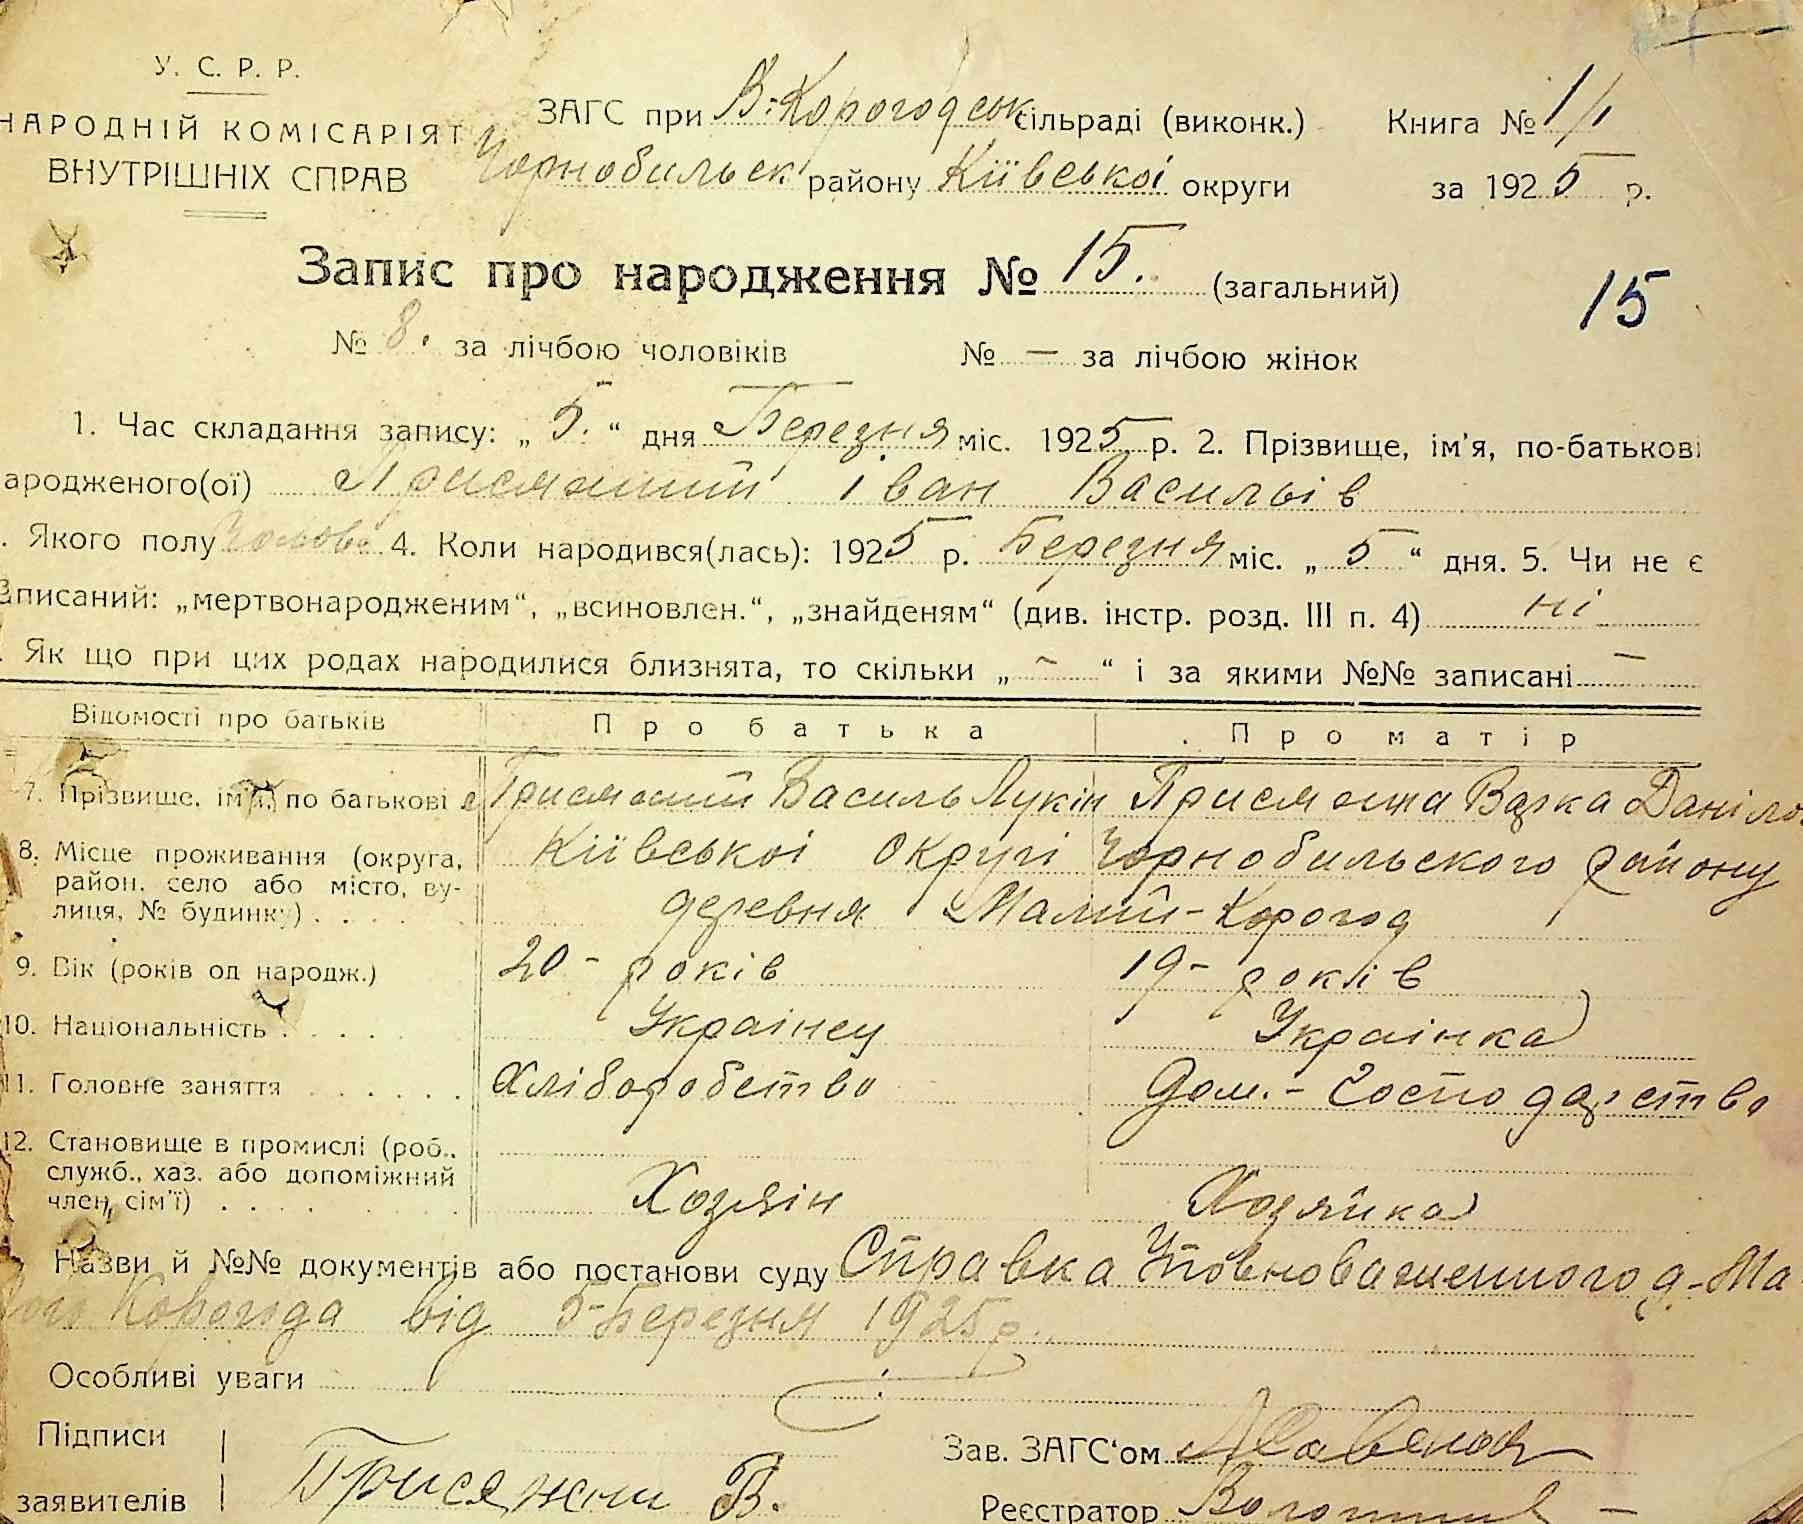 У. С. Р. Р.
НАРОДНІЙ КОМІСАРІЯТ
ВНУТРІШНІХ СПРАВ
ЗАГС при В-Корогодськ сільраді (виконк.) Книга № 1/1
Чорнобильськ району Київськоі округи за 1925 р.
Запис про народження № 15. (загальний)
15
№ 8. за лічбою чоловіків № — за лічбою жінок
1. Час складання запису: „ 5. “ дня Березня міс. 1925 р. 2. Прізвище, ім'я, по-батькові
ародженого(ої) Присяжний іван Васильів
. Якого полу Чолов. 4. Коли народився(лась): 1925 р. Березня міс. „ 5 “ дня. 5. Чи не є
Записаний: „мертвонародженим“, „всиновлен.“, „знайденям“ (див. інстр. розд. III п. 4) ні
. Як що при цих родах народилися близнята, то скільки „ - “ і за якими №№ записані —
Відомості про батьків Про батька Про матір
7. Прізвище, ім'я, по батькові Присяжний Василь Лукін Присяжна Данілов
8. Місце проживання (округа, район, село або місто, ву-
лиця, № будинку) . . . .
Київськоі округі Чорнобильского району
деревня Малий-Корогод
9. Вік (років од народж.) 20 - років 19 - років
10. Національність . . . . Украінец Украінка
11. Головне заняття . . . . . . Хліборобство Дом.- Господарство
12. Становище в промислі (роб.,
служб., хаз. або допоміжний
член, сім'ї) . . . . Хозяін Хозяйка
Назви й №№ документів або постанови суду Справка Уповноваженного д-Ма-
лого Корогода від 5-Березня 1925 р.
Особливі уваги
Підписи
заявителів Присяжни В.
Зав. ЗАГС'ом
Реєстратор